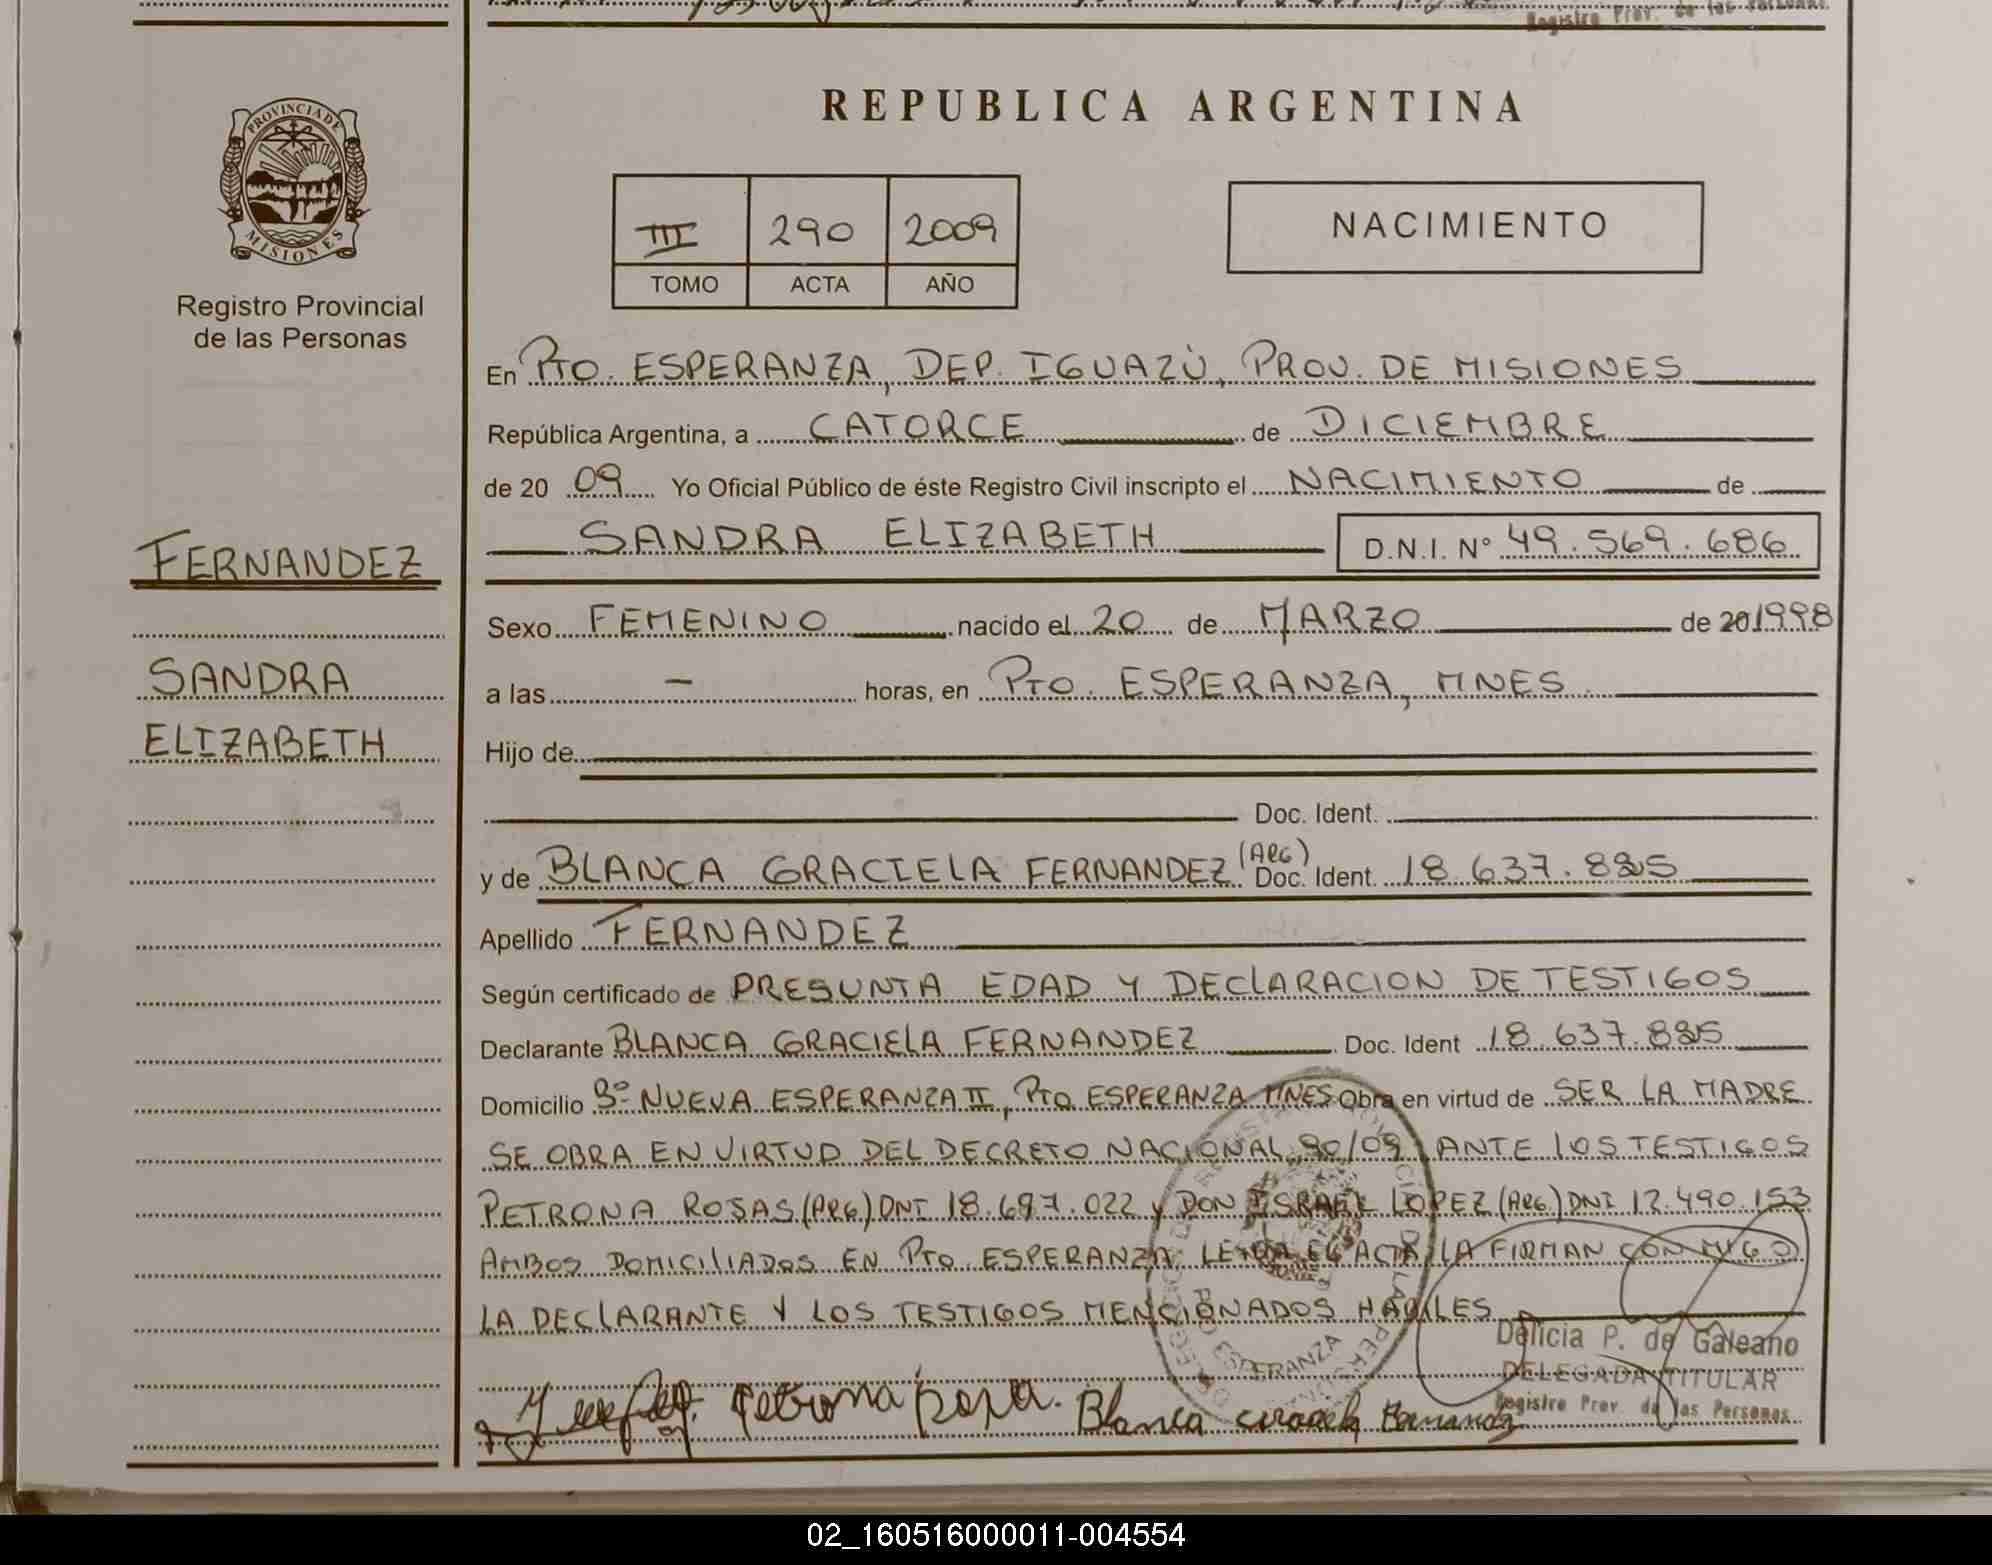 Registro Prov. de las Personas
PROVINCIA DE
MISIONES
Registro Provincial
de las Personas
REPUBLICA ARGENTINA
III 290 2009
TOMO ACTA AÑO
NACIMIENTO
En PTO. ESPERANZA, DEP. IGUAZÚ, PROV. DE MISIONES
República Argentina, a CATORCE de DICIEMBRE
de 20 09 Yo Oficial Público de éste Registro Civil inscripto el NACIMIENTO de
SANDRA ELIZABETH D.N.I. Nº 49.569.686
FERNANDEZ
SANDRA
ELIZABETH
Sexo FEMENINO nacido el 20 de MARZO de 20 1998
a las - horas, en PTO. ESPERANZA, MNES.
Hijo de
Doc. Ident.
y de BLANCA GRACIELA FERNANDEZ (ARG) Doc. Ident. 18.637.885
Apellido FERNANDEZ
Según certificado de PRESUNTA EDAD Y DECLARACION DE TESTIGOS
Declarante BLANCA GRACIELA FERNANDEZ Doc. Ident 18.637.885
Domicilio Bº NUEVA ESPERANZA II, PTO ESPERANZA MNES Obra en virtud de SER LA MADRE
SE OBRA EN VIRTUD DEL DECRETO NACIONAL 90/09 ANTE LOS TESTIGOS
PETRONA ROSAS (ARG) DNI 18.697.022 y DON ISRAEL LOPEZ (ARG) DNI 12.490.153
AMBOS DOMICILIADOS EN PTO. ESPERANZA. LEIDA EL ACTA LA FIRMAN CONMIGO
LA DECLARANTE Y LOS TESTIGOS MENCIONADOS HABILES
Delicia P. de Galeano
DELEGADA TITULAR
Registro Prov. de las Personas
Petrona Rosa. Blanca Graciela Fernandez
02_160516000011-004554